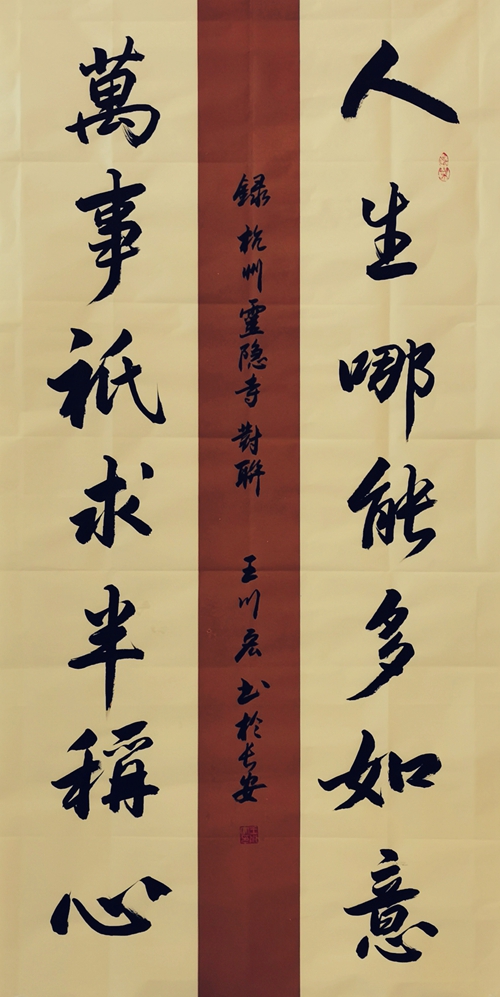 人生哪能多如意
萬事祇求半稱心
録杭州靈隐寺對聯 王川宏书於长安